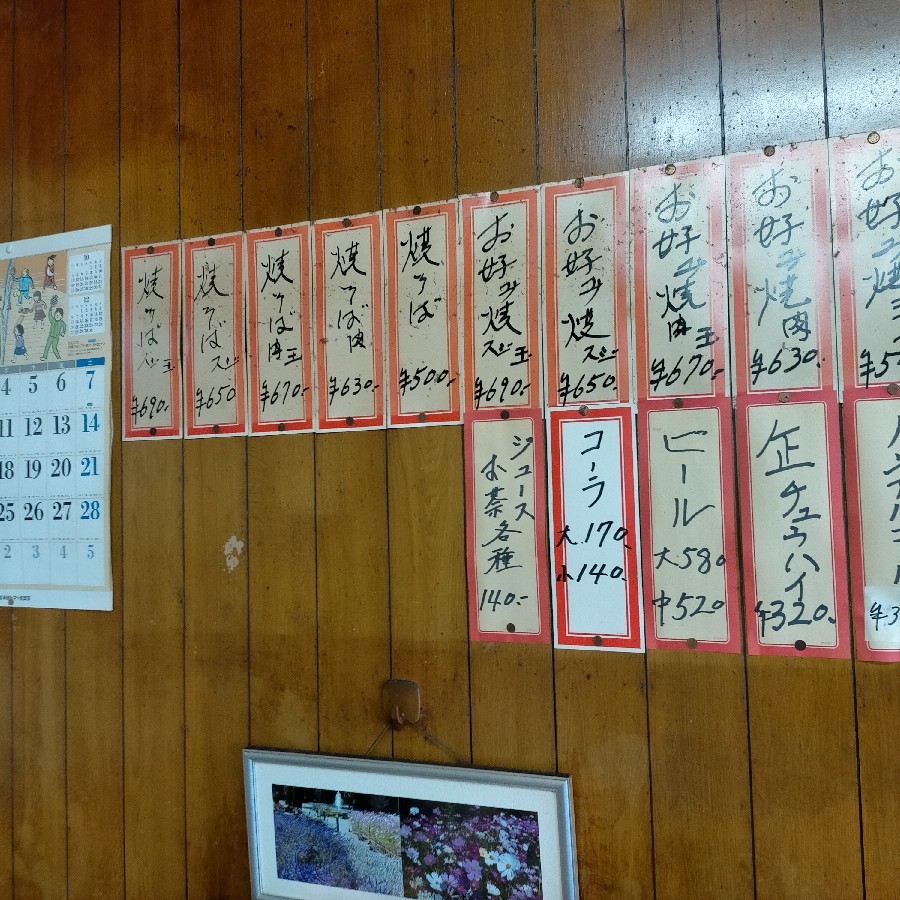 焼そばスジ玉
¥690.-
焼そばスジ
¥650
焼そば肉玉
¥670.-
焼そば肉
¥630.-
焼そば
¥500.-
お好み焼スジ玉
¥690.-
お好み焼スジ
¥650.
お好み焼肉玉
¥670.-
お好み焼肉
¥630.-
お好み焼
ジュース
お茶各種
140.-
コーラ
大.170.
小140.
ビール
大.580
中520
缶チュウハイ
¥320.-
4 5 6 7
11 12 13 14
18 19 20 21
25 26 27 28
2 3 4 5